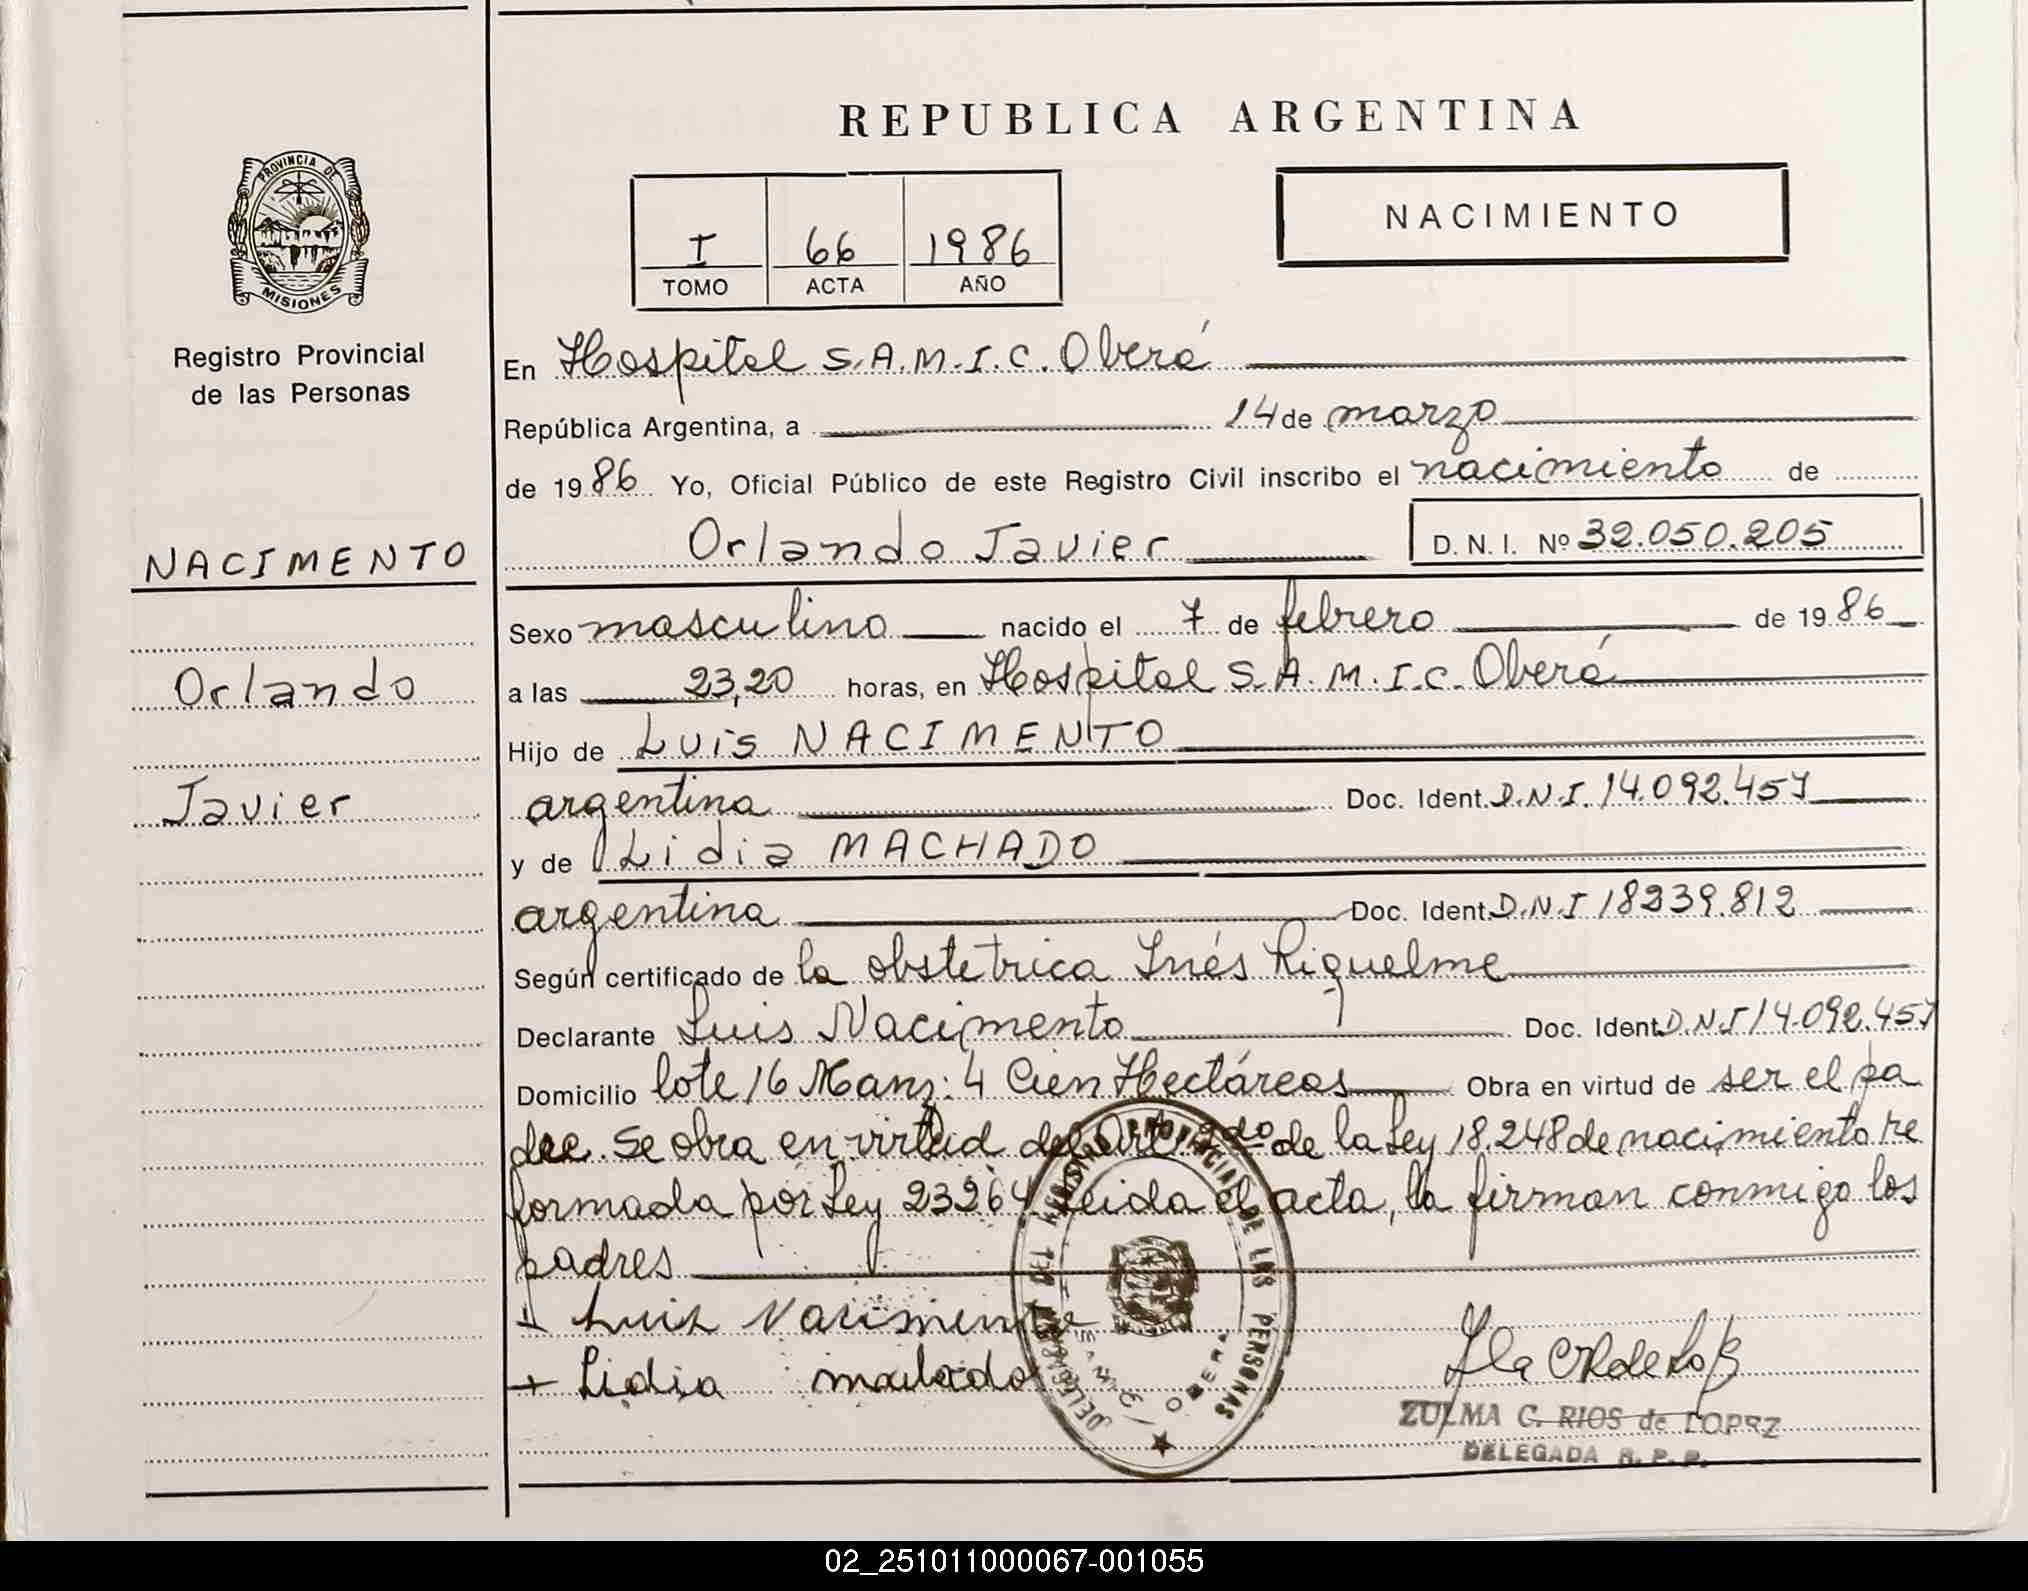 REPUBLICA ARGENTINA
PROVINCIA DE
MISIONES
Registro Provincial
de las Personas
I 66 1986
TOMO ACTA AÑO
NACIMIENTO
En Hospital S.A.M.I.C. Oberá
República Argentina, a 14 de marzo
de 1986 Yo, Oficial Público de este Registro Civil inscribo el nacimiento de
Orlando Javier D.N.I. Nº 32.050.205
NACIMENTO
Orlando
Javier
Sexo masculino nacido el 7 de febrero de 1986
a las 23,20 horas, en Hospital S.A.M.I.C. Oberá
Hijo de Luis NACIMENTO
argentina Doc. Ident. D.N.I. 14.092.457
y de Lidia MACHADO
argentina Doc. Ident. D.N.I 18239.812
Según certificado de la obstetrica Inés Riquelme
Declarante Luis Nacimento Doc. Ident. D.N.I 14.092.457
Domicilio lote 16 Manz: 4 Cien Hectáreas Obra en virtud de ser el pa
dre. Se obra en virtud del Art. 2do de la Ley 18.248 de nacimiento re
formada por Ley 23264 Leida el acta, la firman conmigo los
padres
+ Luis Nacimento
+ Lidia machado
REGISTRO PROVINCIAL DE LAS PERSONAS
OBERA
ZULMA C. RIOS de LOPEZ
DELEGADA R. P. P.
02_251011000067-001055